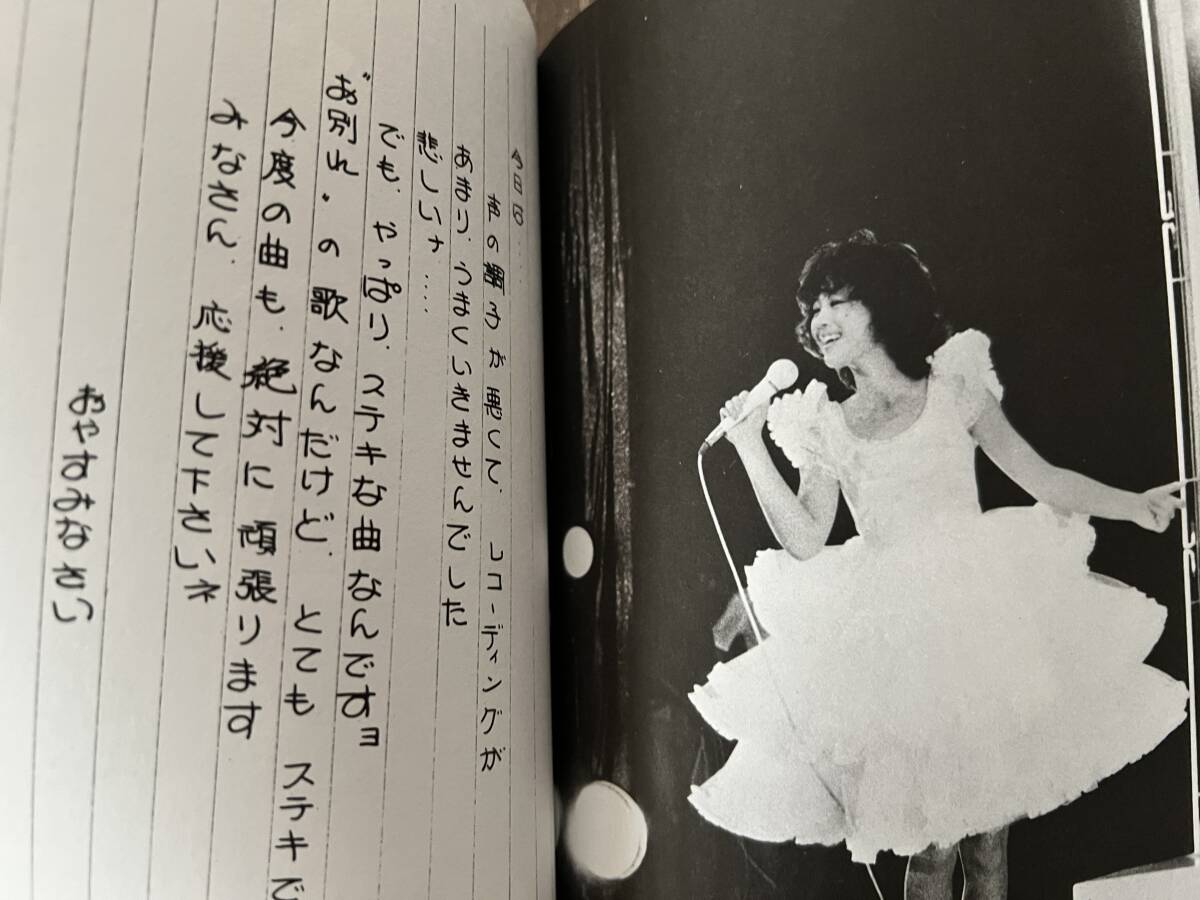 今日は.....
の調子が悪くて、レコーディングが
あまり、うまくいきませんでした
悲しいナ....
でも、やっぱり、ステキな曲なんですヨ
“お別れ”の歌なんだけど、とても ステキで
今度の曲も、絶対に頑張ります
みなさん、応援して下さいネ
おやすみなさい